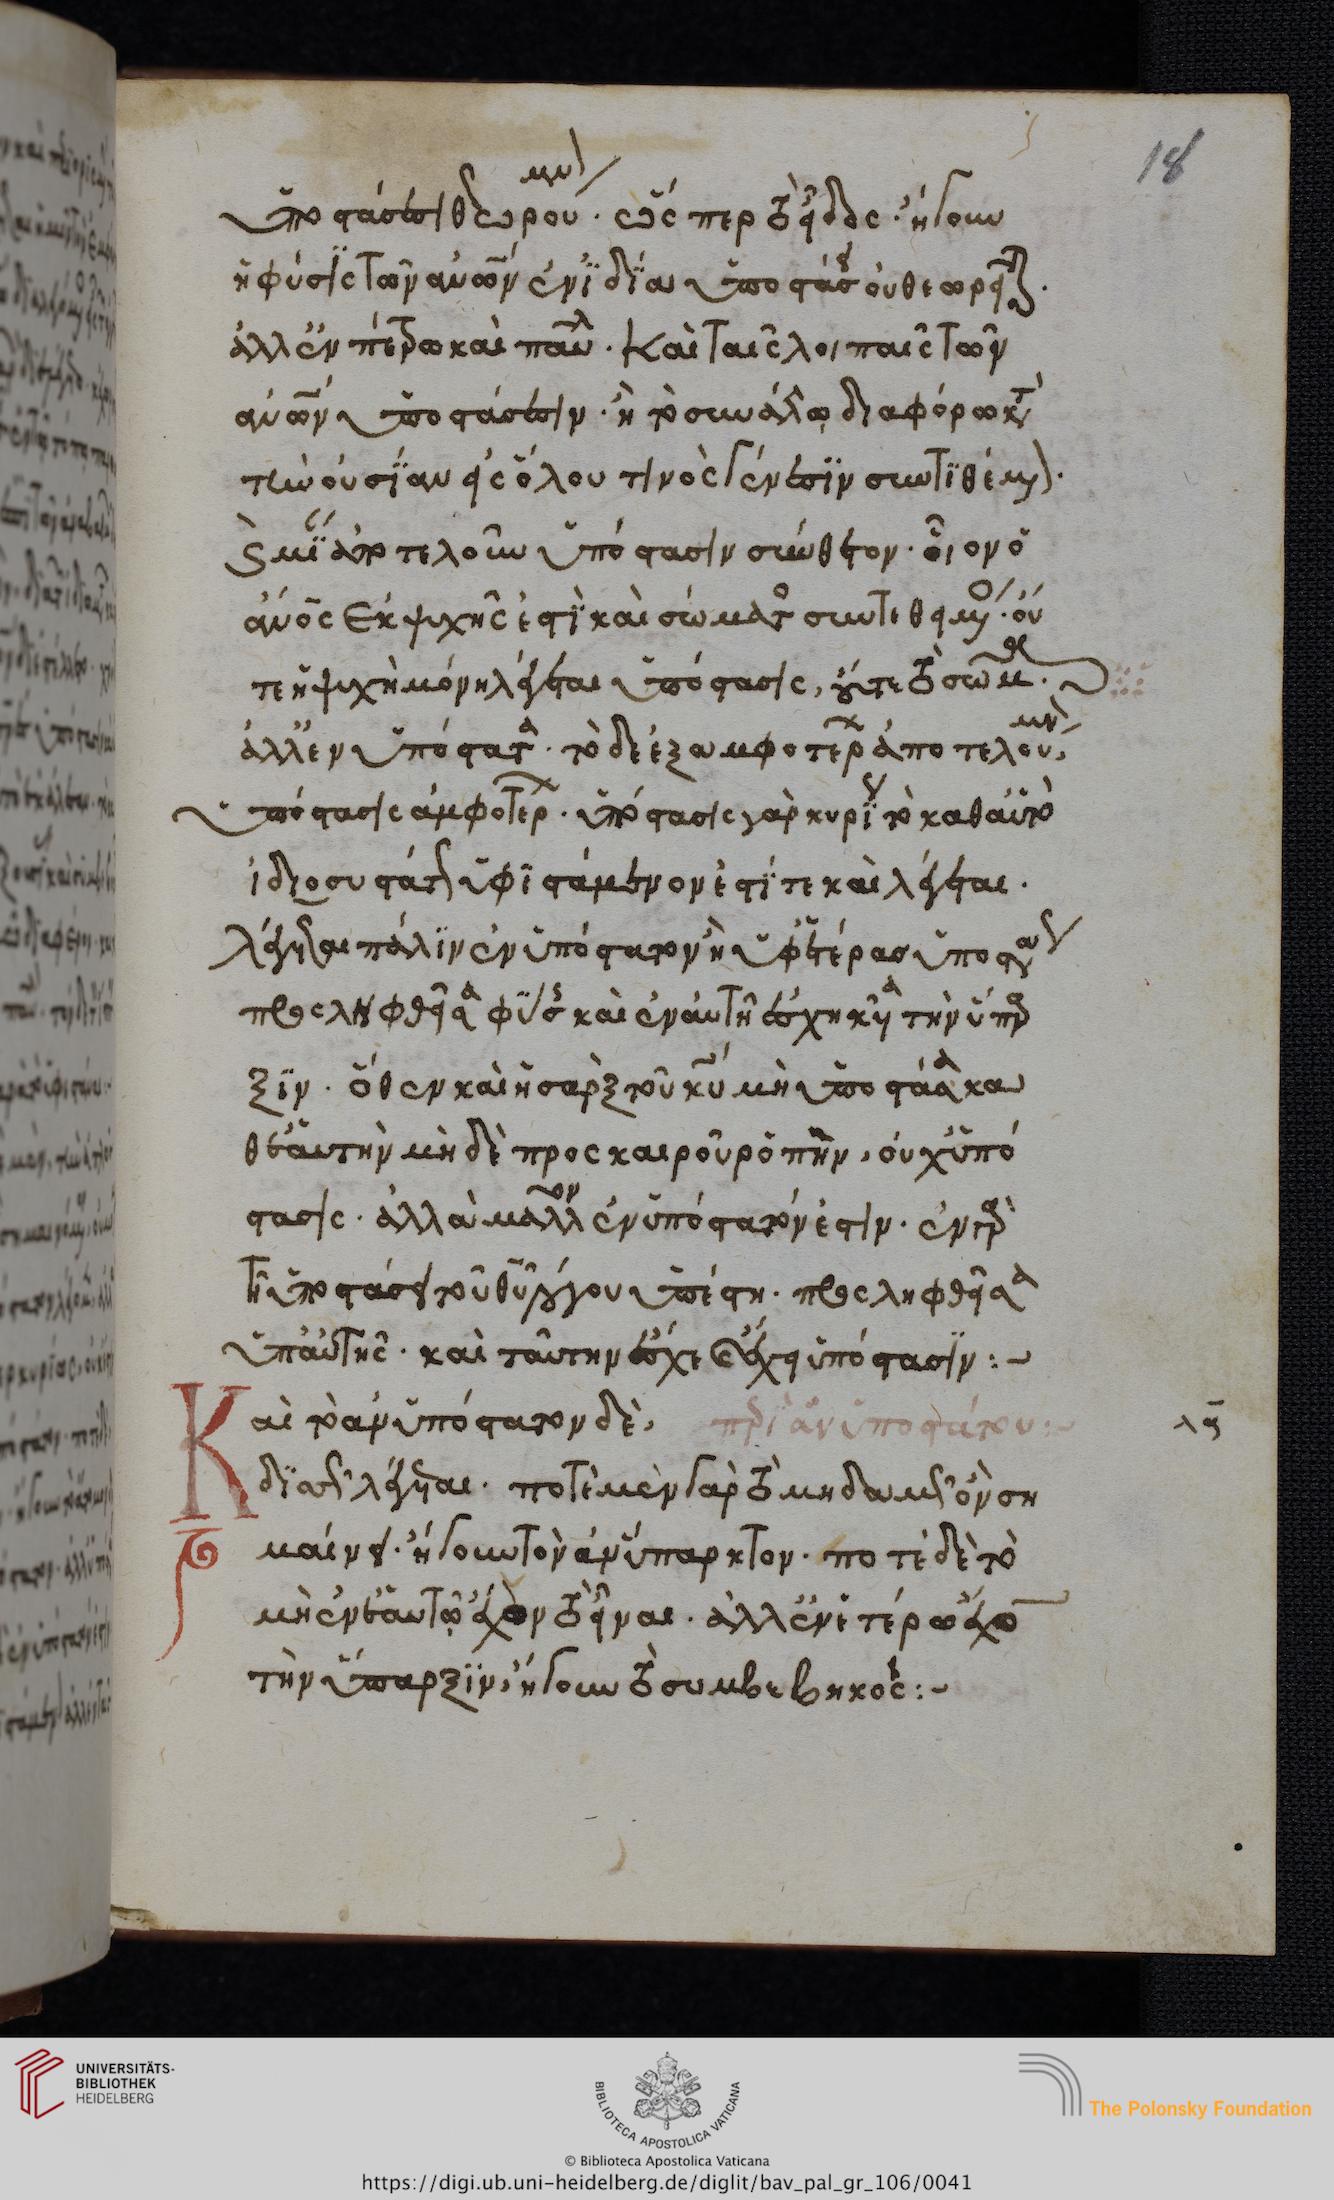 18
ὑποστάσεσι θεωρούμενον · ὥσπερ τὸ εἶδος · ἤγουν
ἡ φύσις τῶν ἀνων ἐν ἰδία ὑποστάσει οὐ θεωρεῖται ·
ἀλλ ἐν πέτρω καὶ παύλω · καὶ ταῖς λοιπαῖς τῶν
ἀνων ὑποστάσεσιν · ἢ τὸ σὺν ἄλλω διαφόρω κατὰ
τὴν οὐσίαν εἰς ὅλου τινὸς γένεσιν συντιθέμενον ·
καὶ μίαν ἀποτελοῦν ὑπόστασιν σύνθετον · οἷον ὁ
ἀνος ἐκ ψυχῆς ἐστὶ καὶ σώματος συντεθειμένος · οὔ
τε ἡ ψυχὴ μόνη λέγεται ὑπόστασις, οὔτε τὸ σῶμα ·
ἀλλ ἐνυπόστατα · τὸ δὲ ἐξ ἀμφοτέρων ἀποτελούμενον,
ὑπόστασις ἀμφοτέρων · ὑπόστασις γὰρ κυρίως τὸ καθ αὑτὸ
ἰδιοσυστάτως ὑφιστάμενον ἐστί τε καὶ λέγεται ·
λέγεται πάλιν ἐνυπόστατον ἡ ὑφ ἑτέρας ὑποστάσεως
προσληφθεῖσα φύσις καὶ ἐν αὐτῆ ἐσχηκυῖα τὴν ὕπαρ
ξιν · ὅθεν καὶ ἡ σαρξ τοῦ κυ μὴ ὑποστᾶσα κα
θ ἑαυτὴν μὴ δὲ πρὸς καιροῦ ῥοπὴν, οὐχ ὑπό
στασις · ἀλλὰ μᾶλλον ἐνυπόστατόν ἐστιν · ἐν γὰρ
τῆ ὑποστάσει τοῦ θυ λόγου ὑπέστη · προσληφθεῖσα
ὑπ αὐτῆς · καὶ ταύτην ἔσχε καὶ ἔχει ὑπόστασιν :~
Καὶ τὸ ἀνυπόστατον δὲ, περὶ ἀνυποστάτου :~
διχῶς λέγεται · ποτὲ μὲν γὰρ τὸ μηδαμῶς ὂν ση
μαίνει · ἤγουν τὸν ἀνύπαρκτον · ποτὲ δὲ τὸ
μὴ ἐν ἑαυτῶ ἔχον τὸ εἶναι · ἀλλ ἐν ἑτέρω ἔχον
τὴν ὕπαρξιν, ἤγουν τὸ συμβεβηκός :~
UNIVERSITÄTS-
BIBLIOTHEK
HEIDELBERG
BIBLIOTECA APOSTOLICA VATICANA
The Polonsky Foundation
© Biblioteca Apostolica Vaticana
https://digi.ub.uni-heidelberg.de/diglit/bav_pal_gr_106/0041